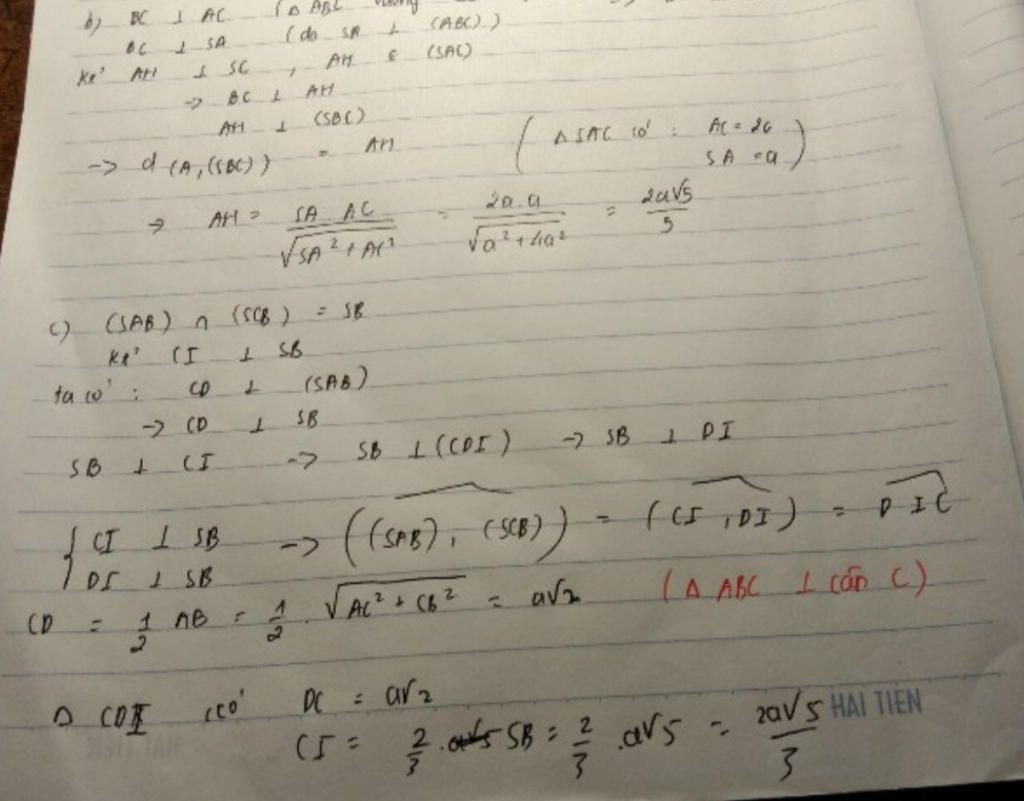 b) BC ⊥ AC (Δ ABC vuông
BC ⊥ SA (do SA ⊥ (ABC))
Kẻ AH ⊥ SC , AH ∈ (SAC)
→ BC ⊥ AH
AH ⊥ (SBC)
→ d(A,(SBC)) = AH (Δ SAC có : AC = 2a
SA = a)
→ AH = SA . AC / √SA² + AC² = 2a.a / √a² + 4a² = 2a√5 / 5
c) (SAB) ∩ (SCB) = SB
Kẻ CI ⊥ SB
ta có : CD ⊥ (SAB)
→ CD ⊥ SB
SB ⊥ CI → SB ⊥ (CDI) → SB ⊥ DI
{ CI ⊥ SB
DI ⊥ SB → ((SAB), (SCB)) = (CI, DI) = DIC
CD = 1/2 AB = 1/2 . √AC² + CB² = a√2 (Δ ABC ⊥ cân C)
Δ CDI có DC = a√2
CI = 2/3 . SB = 2/3 . a√5 = 2a√5 / 3
HAI TIEN